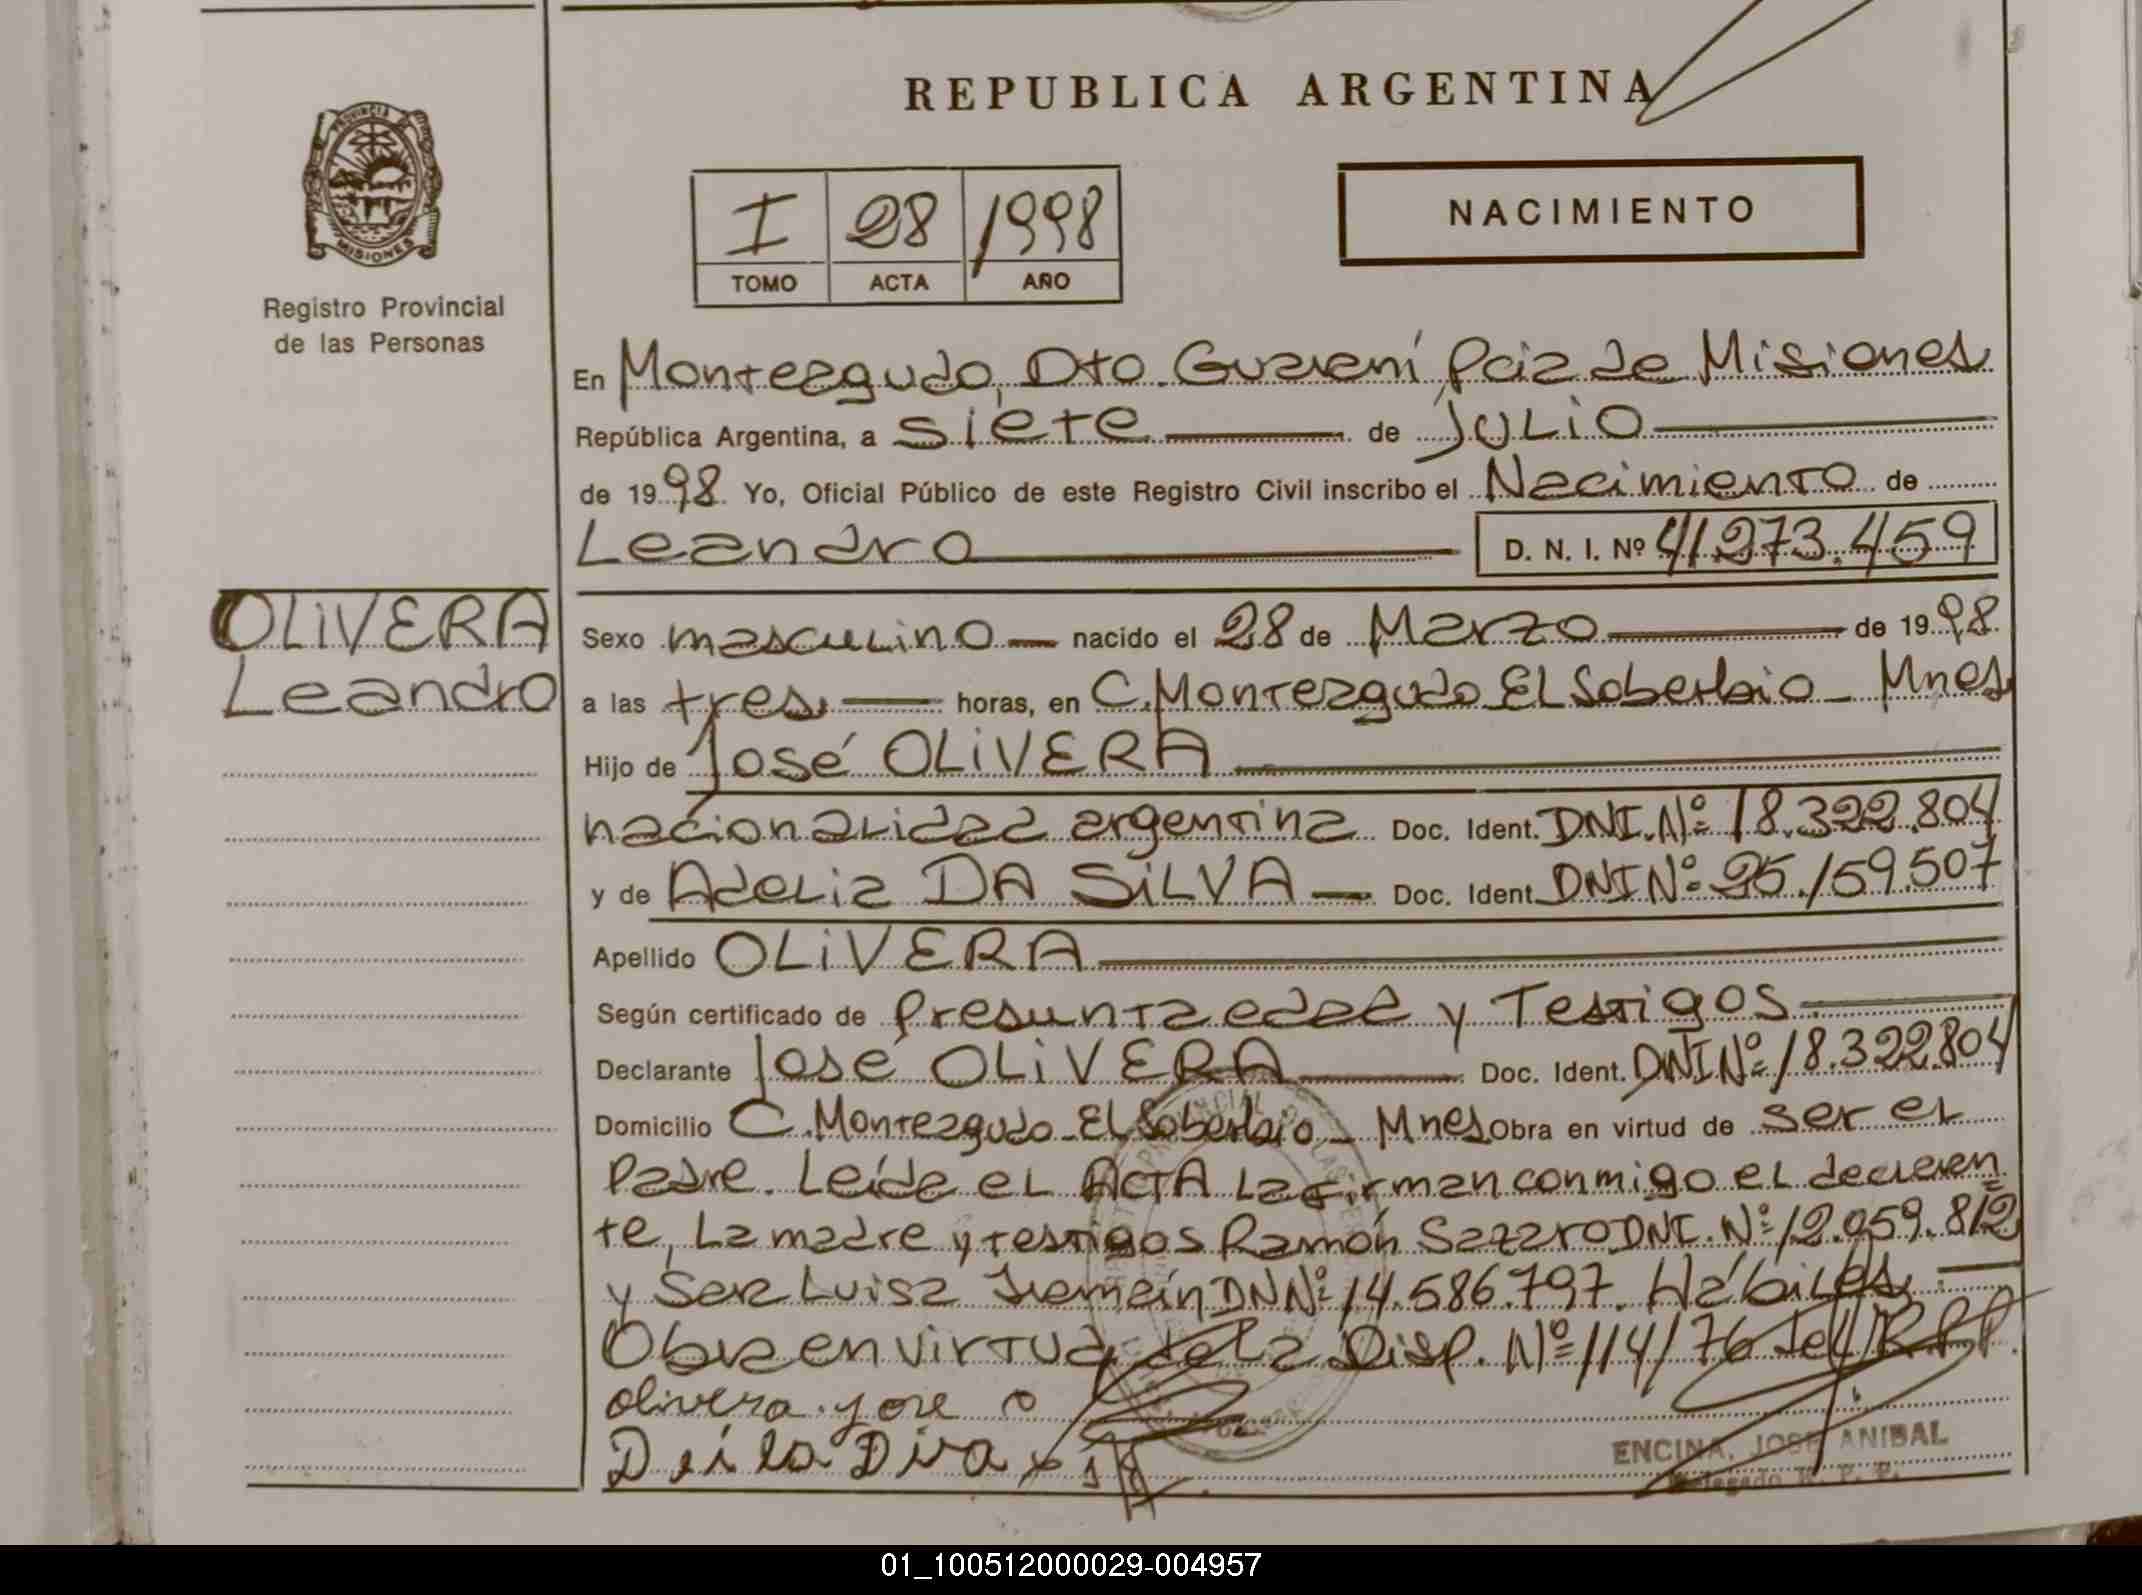 REPUBLICA ARGENTINA
PROVINCIA
MISIONES
Registro Provincial
de las Personas
I 28 1998
TOMO ACTA AÑO
NACIMIENTO
En Monteagudo, Dto. Guaraní, Pcia de Misiones
República Argentina, a siete de Julio
de 1998 Yo, Oficial Público de este Registro Civil inscribo el Nacimiento de
Leandro D. N. I. Nº 41.273.459
OLIVERA
Leandro
Sexo masculino nacido el 28 de Marzo de 1998
a las tres horas, en C. Monteagudo El Soberbio - Mnes
Hijo de José OLIVERA
nacionalidad argentina Doc. Ident. DNI. Nº 18.322.804
y de Adelia DA SILVA Doc. Ident. DNI Nº 25.159.507
Apellido OLIVERA
Según certificado de Presunta edad y Testigos
Declarante José OLIVERA Doc. Ident. DNI Nº 18.322.804
Domicilio C. Monteagudo - El Soberbio - Mnes Obra en virtud de ser el
Padre. Leída el ACTA la firman conmigo el declaran
te, La madre y testigos Ramón DNI. Nº 12.059.812
y Luisa DNI Nº 14.586.797. Hábiles.
Obra en virtud de la Disp. Nº 114/76 del R.P.P.
olivera jose
ENCINA, JOSE ANIBAL
Delegado R. P. P.
01_100512000029-004957